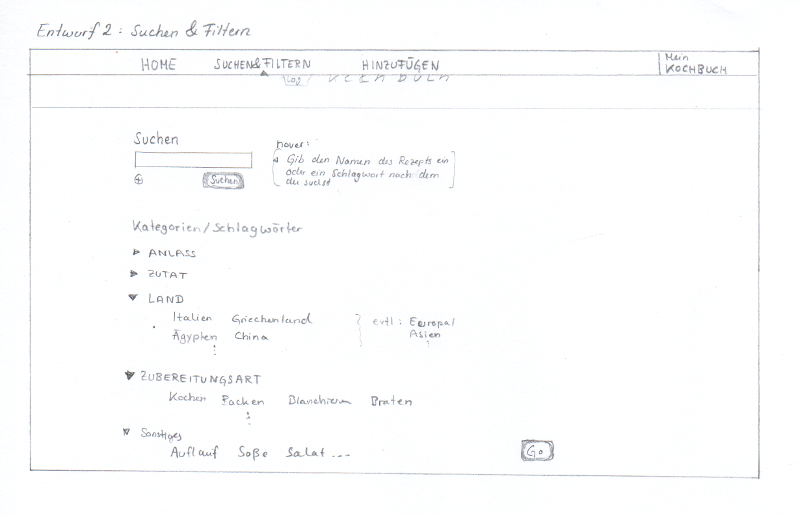 Entwurf 2: Suchen & Filtern
HOME SUCHEN&FILTERN HINZUFÜGEN Mein
KOCHBUCH
Log
Suchen
hover:
Gib den Namen des Rezepts ein
oder ein Schlagwort nach dem
du suchst
Suchen
Kategorien/Schlagwörter
ANLASS
ZUTAT
LAND
Italien Griechenland evtl: Europa/
Ägypten China Asien
ZUBEREITUNGSART
Kochen Backen Blanchieren Braten
Sonstiges
Auflauf Soße Salat...
Go